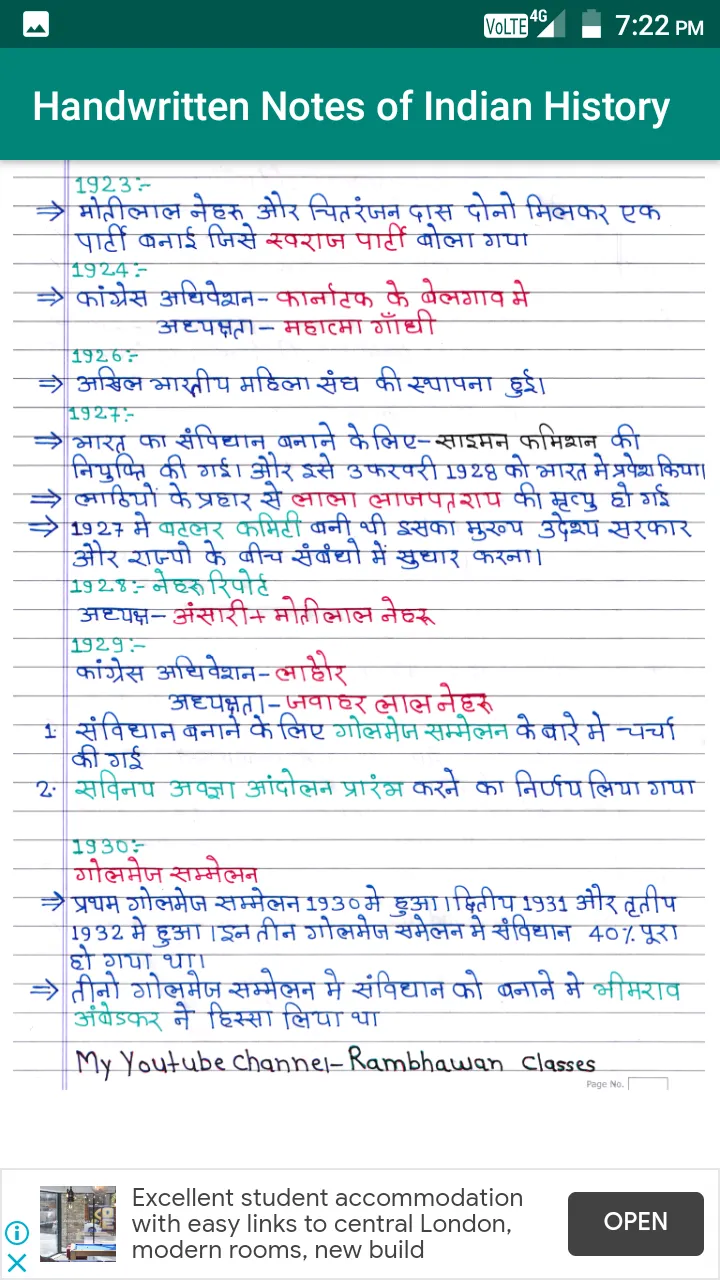 VoLTE 4G 7:22 PM
Handwritten Notes of Indian History
1923:-
⇒ मोतीलाल नेहरू और चितरंजन दास दोनो मिलकर एक
पार्टी बनाई जिसे स्वराज पार्टी बोला गया
1924:-
⇒ कांग्रेस अधिवेशन- कार्नाटक के बेलगाव मे
अध्यक्षता - महात्मा गाँधी
1926:-
⇒ अखिल भारतीय महिला संघ की स्थापना हुई।
1927:-
⇒ भारत का संविधान बनाने के लिए- साइमन कमिशन की
नियुक्ति की गई। और इसे 3 फरवरी 1928 को भारत मे प्रवेश किया।
⇒ लाठियों के प्रहार से लाला लाजपतराय की मृत्यु हो गई
⇒ 1927 मे बटलर कमिटी बनी थी इसका मुख्य उद्देश्य सरकार
और राज्यो के बीच संबंधो में सुधार करना।
1928:- नेहरू रिपोर्ट
अध्यक्ष- अंसारी+ मोतीलाल नेहरू
1929:-
कांग्रेस अधिवेशन- लाहौर
अध्यक्षता- जवाहर लाल नेहरू
1. संविधान बनाने के लिए गोलमेज सम्मेलन के बारे मे चर्चा
की गई
2. सविनय अवज्ञा आंदोलन प्रारंभ करने का निर्णय लिया गया
1930:-
गोलमेज सम्मेलन
⇒ प्रथम गोलमेज सम्मेलन 1930 मे हुआ। द्वितीय 1931 और तृतीय
1932 मे हुआ। इन तीन गोलमेज समेलन मे संविधान 40% पूरा
हो गया था।
⇒ तीनो गोलमेज सम्मेलन मे संविधान को बनाने मे भीमराव
अंबेडकर ने हिस्सा लिया था
My Youtube Channel- Rambhawan Classes
Page No.
Excellent student accommodation
with easy links to central London,
modern rooms, new build
OPEN